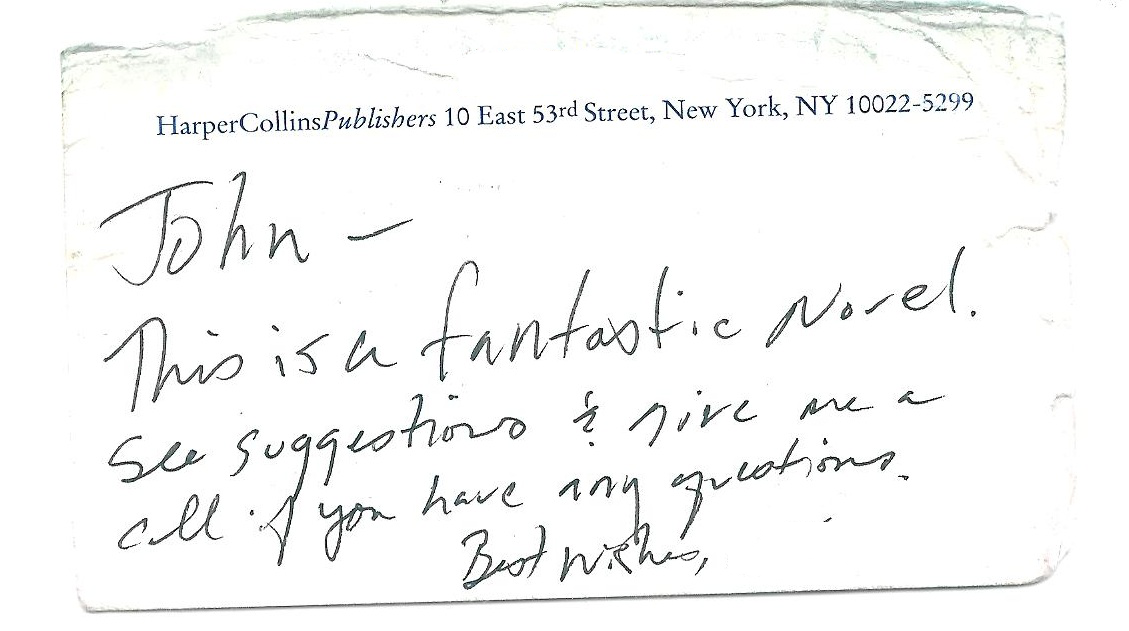 HarperCollinsPublishers 10 East 53rd Street, New York, NY 10022-5299
John —
This is a fantastic Novel.
See suggestions & give me a
call if you have any questions.
Best Wishes,